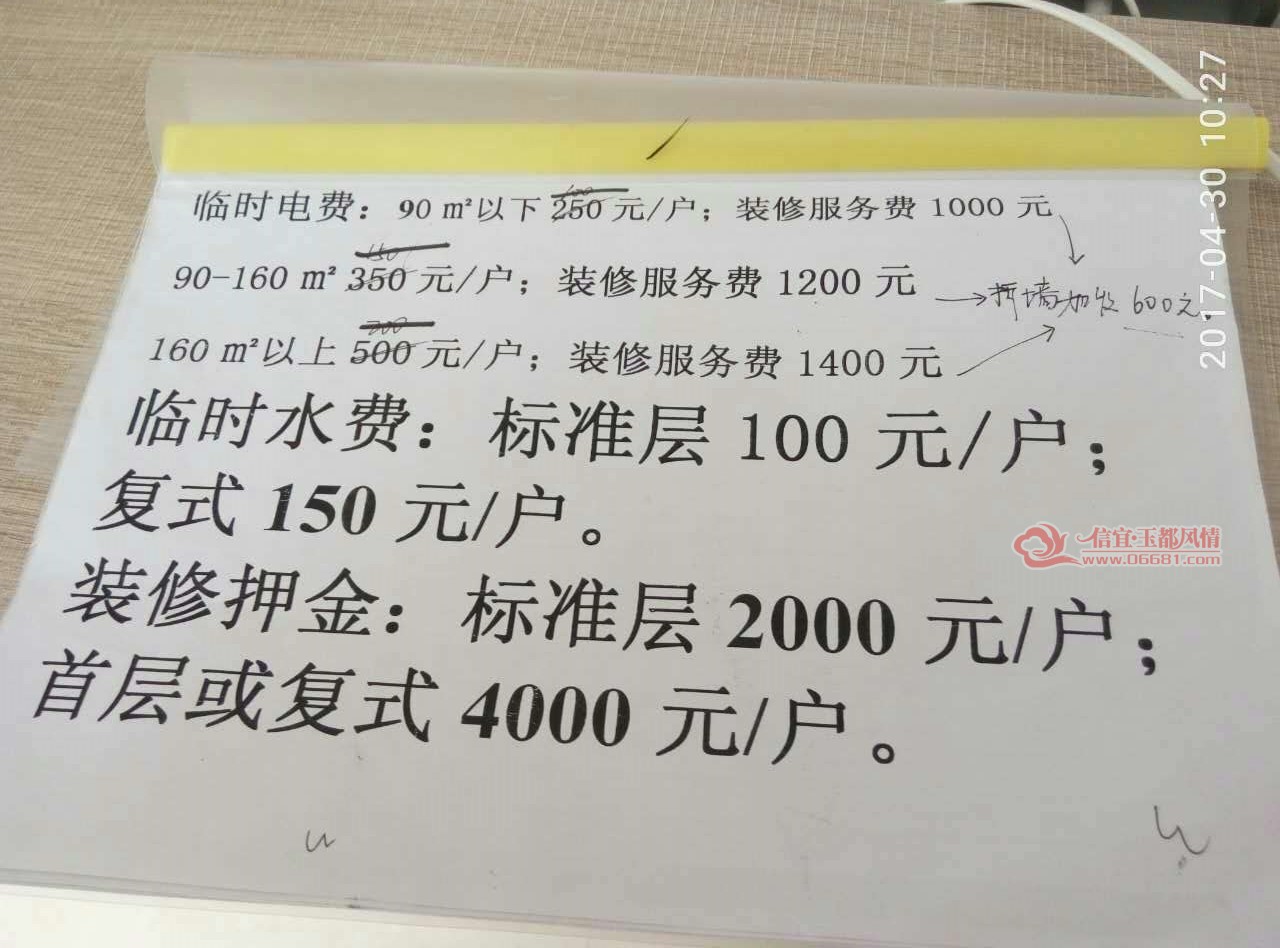 临时电费：90 m²以下 250 元/户；装修服务费 1000 元
150
90-160 m² 350 元/户；装修服务费 1200 元
拆墙加收 600元.
200
160 m²以上 500 元/户；装修服务费 1400 元
临时水费：标准层 100 元/户；
复式 150 元/户。
装修押金：标准层 2000 元/户；
首层或复式 4000 元/户。
2017-04-30 10:27
信宜·玉都风情
www.06681.com